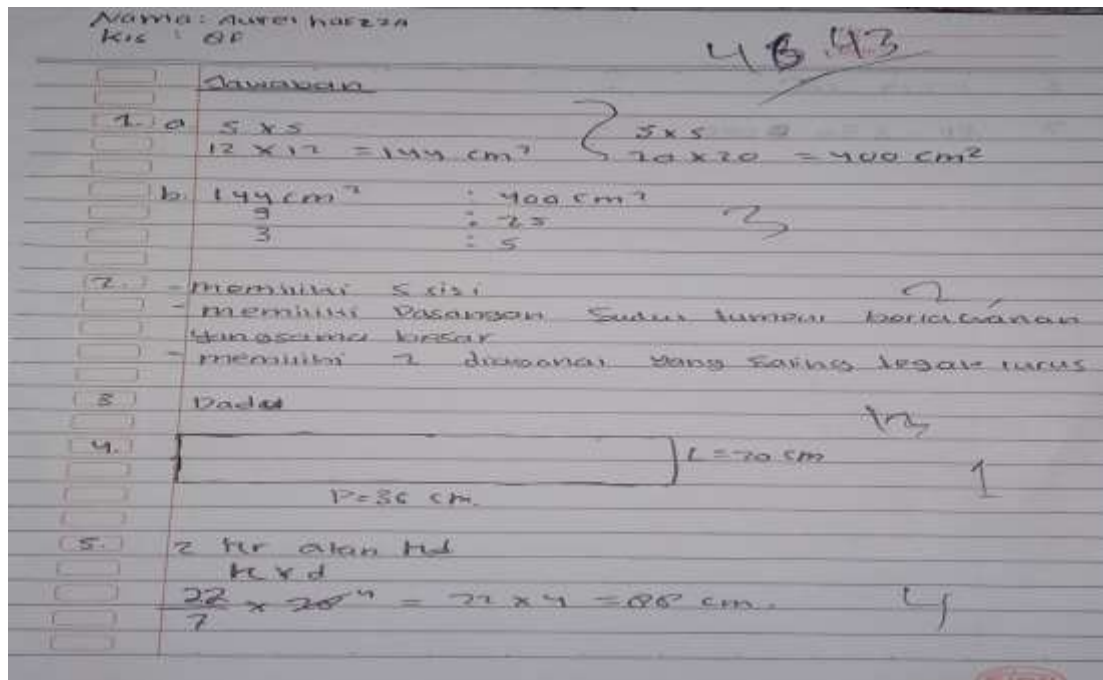 Nama: Aurel
Kls :
Jawaban
1. a 5 x 5
12 x 12 = 144 cm²
5 x 5
20 x 20 = 400 cm²
b. 144 cm² : 400 cm²
9 : 25
3 : 5
3
2. - memiliki 5 sisi
2
- memiliki Pasangan Sudut berlawanan
yang sama besar
- memiliki 2 diagonal yang Saling tegak lurus
3 Dadu
4. L = 20 cm
1
P = 36 cm.
5. 2 πr atau πd
π x d
22/7 x 28 4 = 22 x 4 = 88 cm.
4